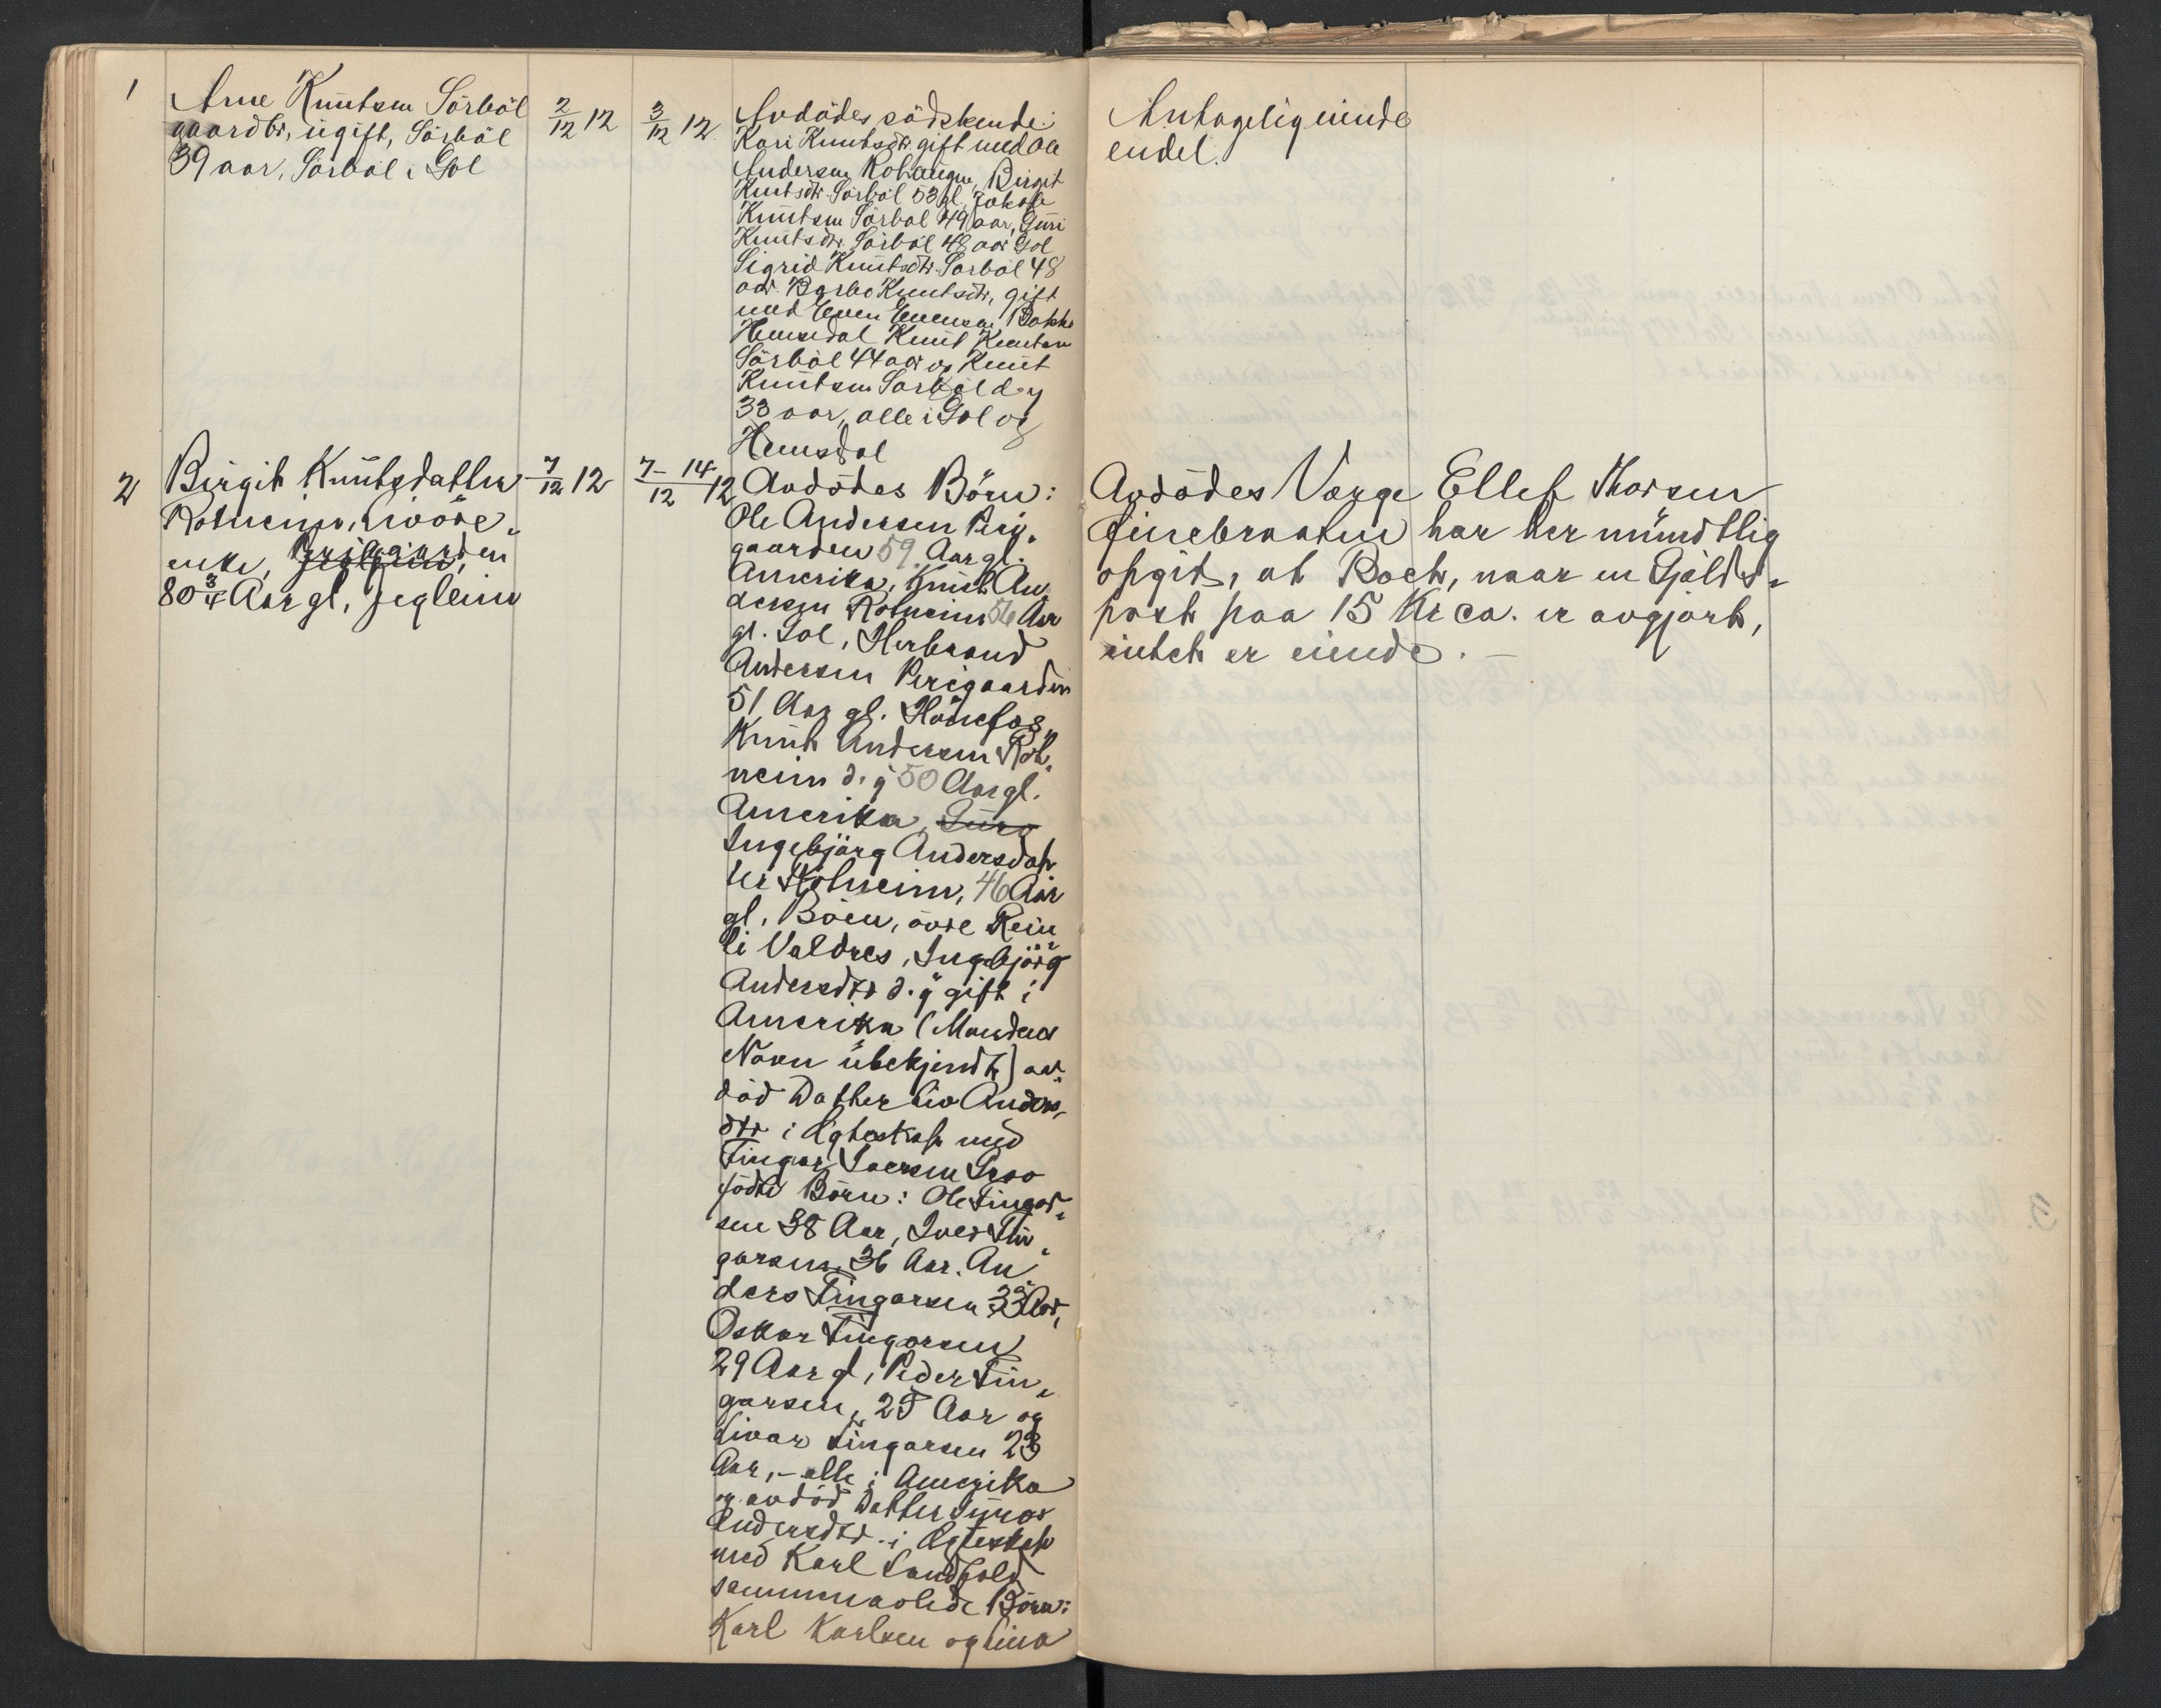 1
Arne Knutsen Sörböl
gaardbr, ugift, Sörböl
39 aar, Sörböl i Gol
2/12 12
3/12 12
Avdödes södskende:
Kari Knutsdtr. gift med Ole
Andersen Rohaugen, Birgit
Knutsdtr. Sörböl 53 gl,
Knutsen Sörböl 49 aar, Guri
Knutsdtr. Sörböl 48 aar Gol
Sigrid Knutsdtr. Sörböl 48
aar Barbo Knutsdtr, gift
med Even Evensen Bakke
Hemsedal Knut Knutsen
Sörböl 44 aar og Knut
Knutsen Sörböl d. y
33 aar, alle i Gol og
Hemsdal
Antagelig intet
endel.
2
Birgit Knutsdatter
Rotneim,
enke, Perigaarden
80 3/4 Aar gl, Jegleim
7/12 12
7-14/12 12
Avdödes Börn:
Ole Andersen Peri-
gaarden 59 Aar gl.
Amerika, Knut An-
dersen Rotneim 56 Aar
gl. Gol, Herbrand
Andersen Perigaarden
51 Aar gl. Hönefos,
Knut Andersen Rot-
neim d. y 50 Aar gl.
Amerika, Guro
Ingebjörg Andersdat-
ter Rotneim, 46 Aar
gl, Böen, övre Rein
li Valdres, Ingebjörg
Andersdtr d. y gift i
Amerika (Mandens
Navn ubekjendt) av-
död Datter Liv Anders-
dtr i Egteskap med
Fingar Iversen Groo
födte Börn: Ole Fingar-
sen 38 Aar, Iver Fin-
garsen 36 Aar. An
ders Fingarsen 33 Aar,
Oskar Fingarsen
29 Aar gl, Peder Fin-
garsen, 25 Aar og
Sivar Fingarsen 23
Aar, - alle i Amerika
og avdöd Datter
Andersdtr. i Egteskap
med Karl
sammenavlede Börn:
Karl Karlsen og Lina
Avdödes Verge Ellef Thorsen
Finebraaten har her mundtlig
opgit, at Boet, naar en Gjelds-
post paa 15 Kr ca. er avgjort,
intet er eiende. -